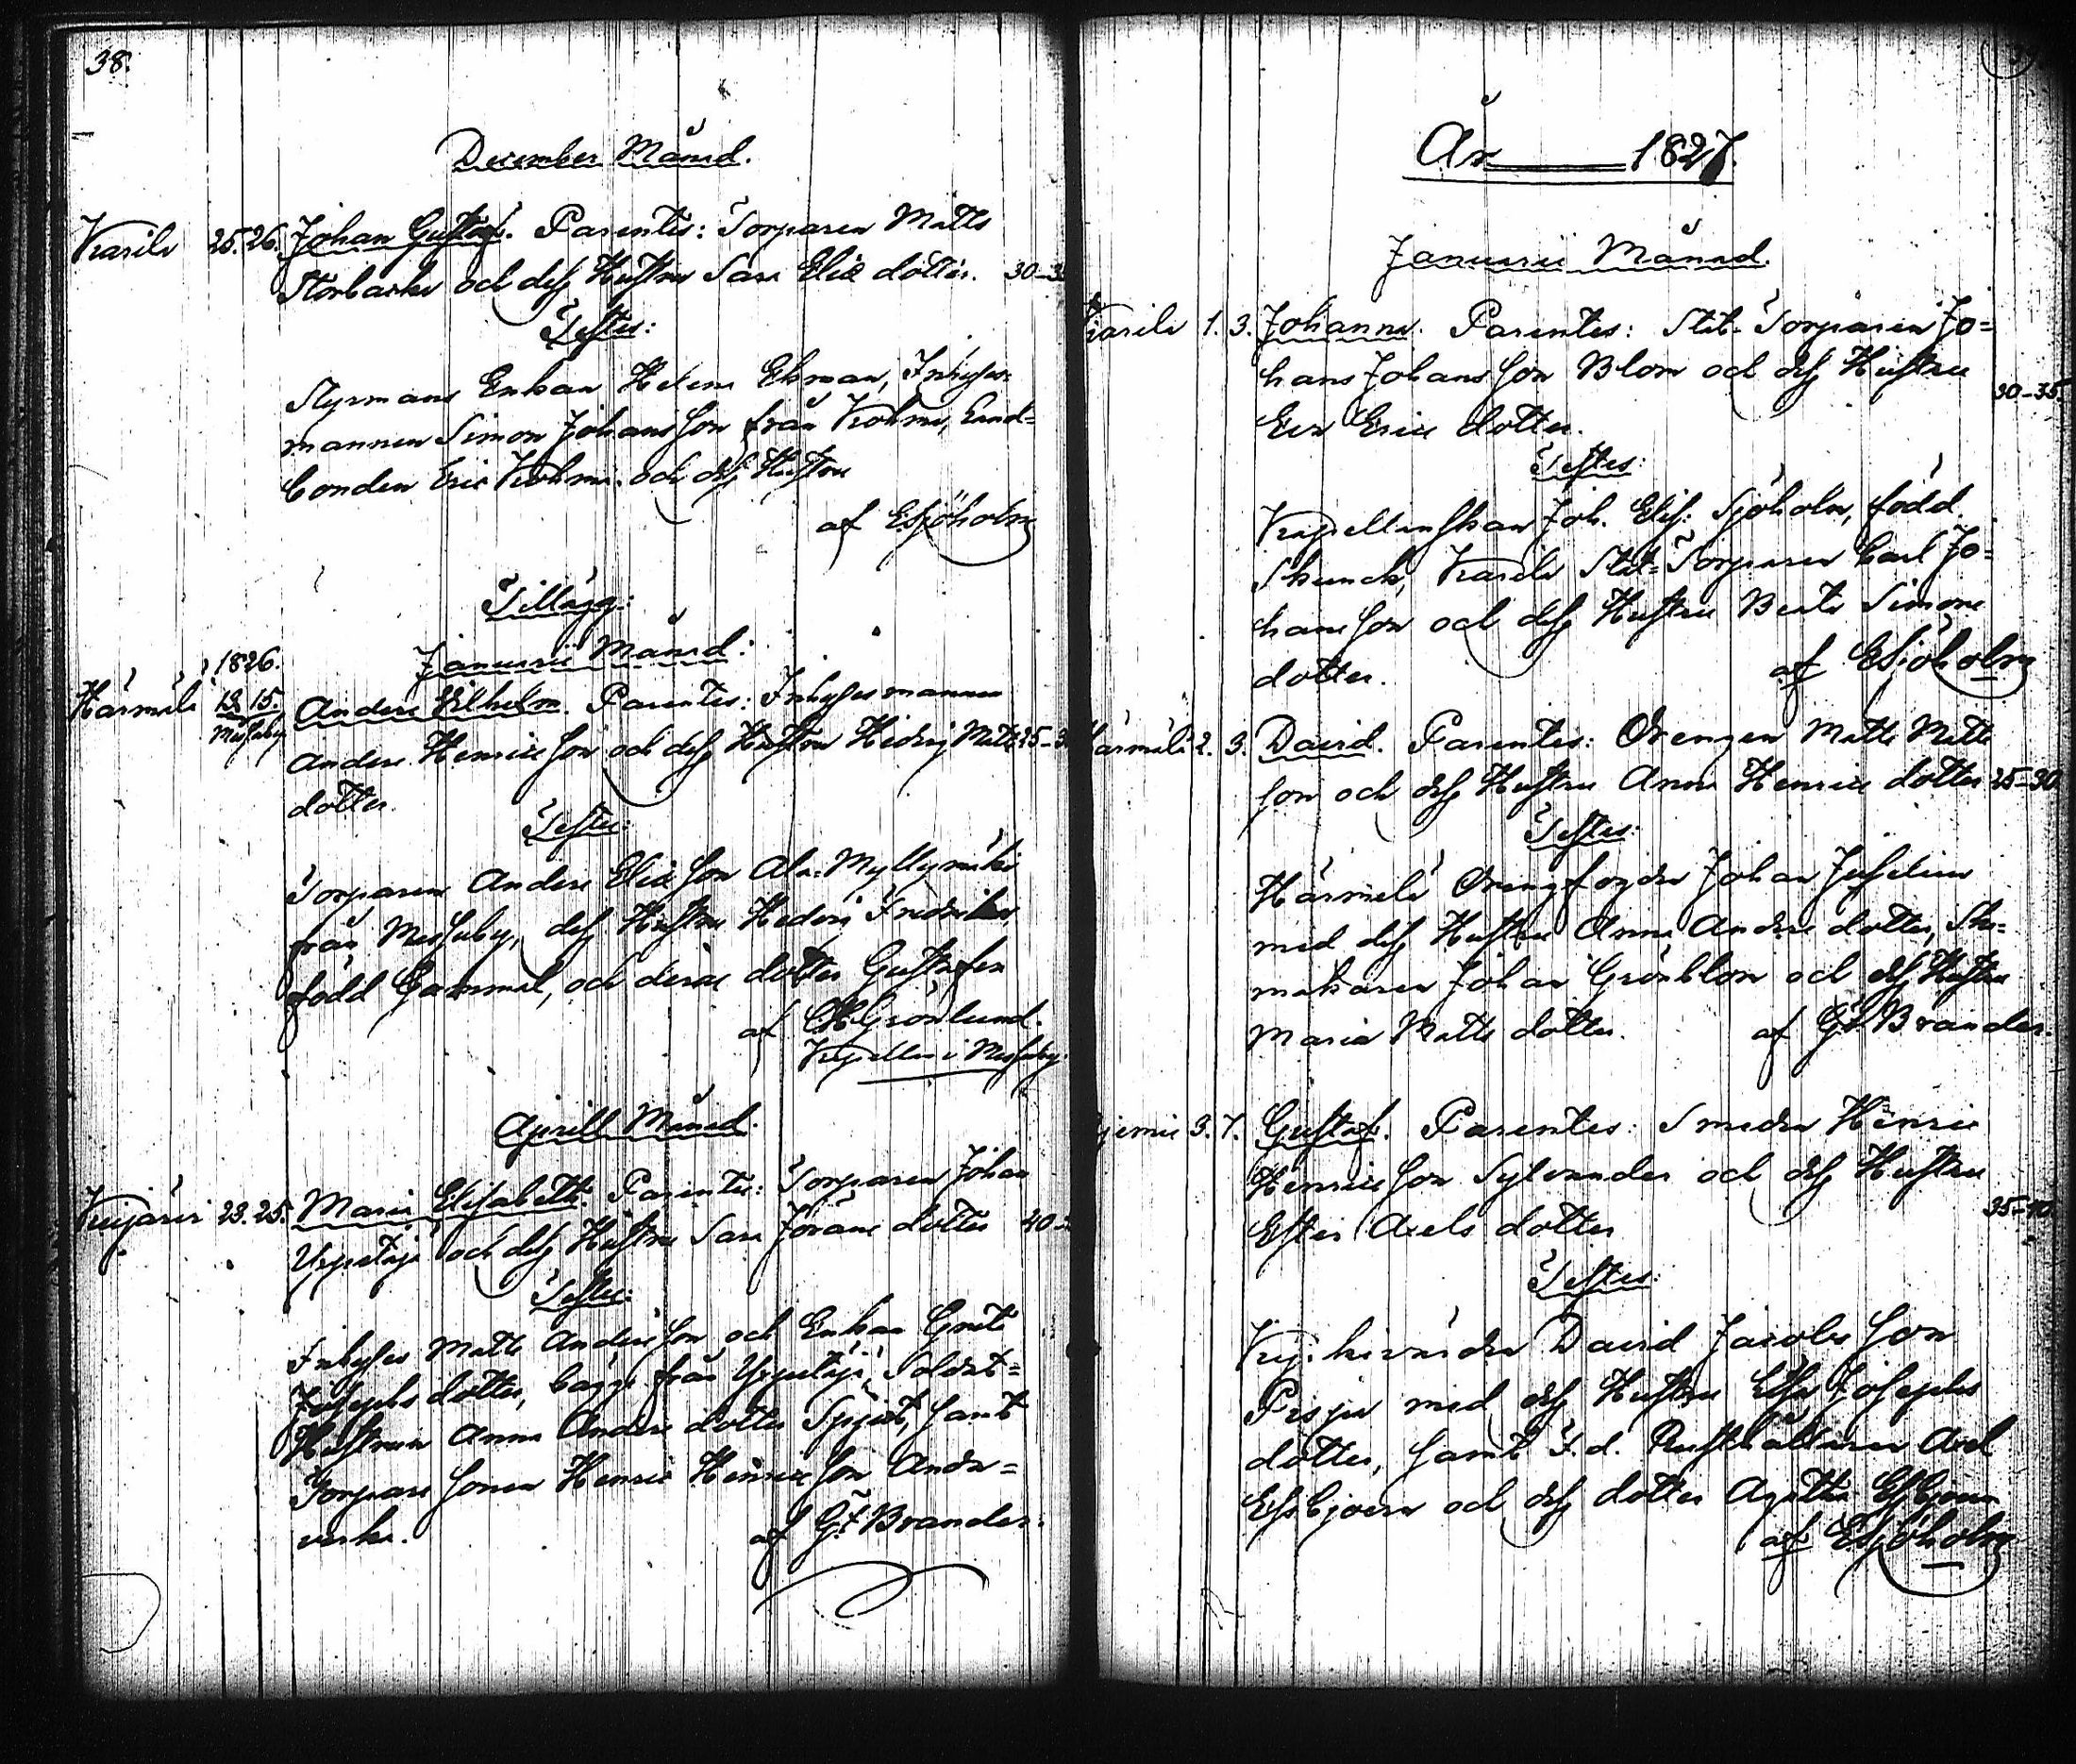 38.
December Månad.
Karila 25. 26. Johan Gustaf. Parentes: Torparen Matts
Storbacka och dess Hustru Sara Elias dotter. 30-3
Testes:
Styrmans Enkan Helena Ekman, Inhyses-
mannen Simon Johansson från Krohna, Land-
bonden Eric Krohna och dess Hustru
af ESjöholm
Tillägg:
1826. Januarii Månad:
Härmälä 13. 15. Anders Vilhelm. Parentes: Inhyses mannen
Messuby
Anders Henricsson och dess Hustru Hedvig Matts 25-3
dotter.
Testes:
Torparen Anders Eliasson Ala-Myllymäki
från Messuby, dess Hustru Hedvig Fredrika,
född Gammal, och deras dotter Gustafva
af Grönlund.
Kapellan i Messuby.
Aprill Månad.
23. 25. Maria Elisabeth. Parentes: Torparen Johan
Yrjetäjä och dess Hustru Sara Jörans dotter 40-
Testes:
Inhyses Matts Andersson och Enkan Greta
Josephs dotter, bägge från Yrjetäjä, Soldat-
Hustrun Anna Anders dotter Spjut, samt
Torpare sonen Henric Henricsson Anda-
verka.
af G. F. Brander.
År 1827.
Januarii Månad.
Karila 1. 3. Johanna. Parentes: Stat-Torparen Jo-
hans Johansson Blom och dess Hustru 30-35.
Eva Erics dotter.
Testes:
Kapellanskan Joh. Elis: Sjöholm, född
Skunck, Karila Stat-Torparen Carl Jo-
hansson och dess Hustru Beata Simons
dotter. af ESjöholm
Härmälä 2. 3. David. Parentes: Drengen Matts Matts
son och dess Hustru Anna Henrics dotter 25-30
Testes:
Härmälä Drengfogden Johan Juselius
med dess Hustru Anna Anders dotter, Sko-
makaren Johan Grönblom och dess Hustru
Maria Matts dotter. af G F Brander.
3. 7. Gustaf. Parentes: Smeden Henric
Henricsson Sylvander och dess Hustru 35-40
Ester Axels dotter
Testes:
Kyrkivärden David Jacobsson
Pispa med dess Hustru Lisa Josephs
dotter, samt F. d. Rusthållaren Axel
Essbjoern och dess dotter Agatha Essbjoern
af ESjöholm